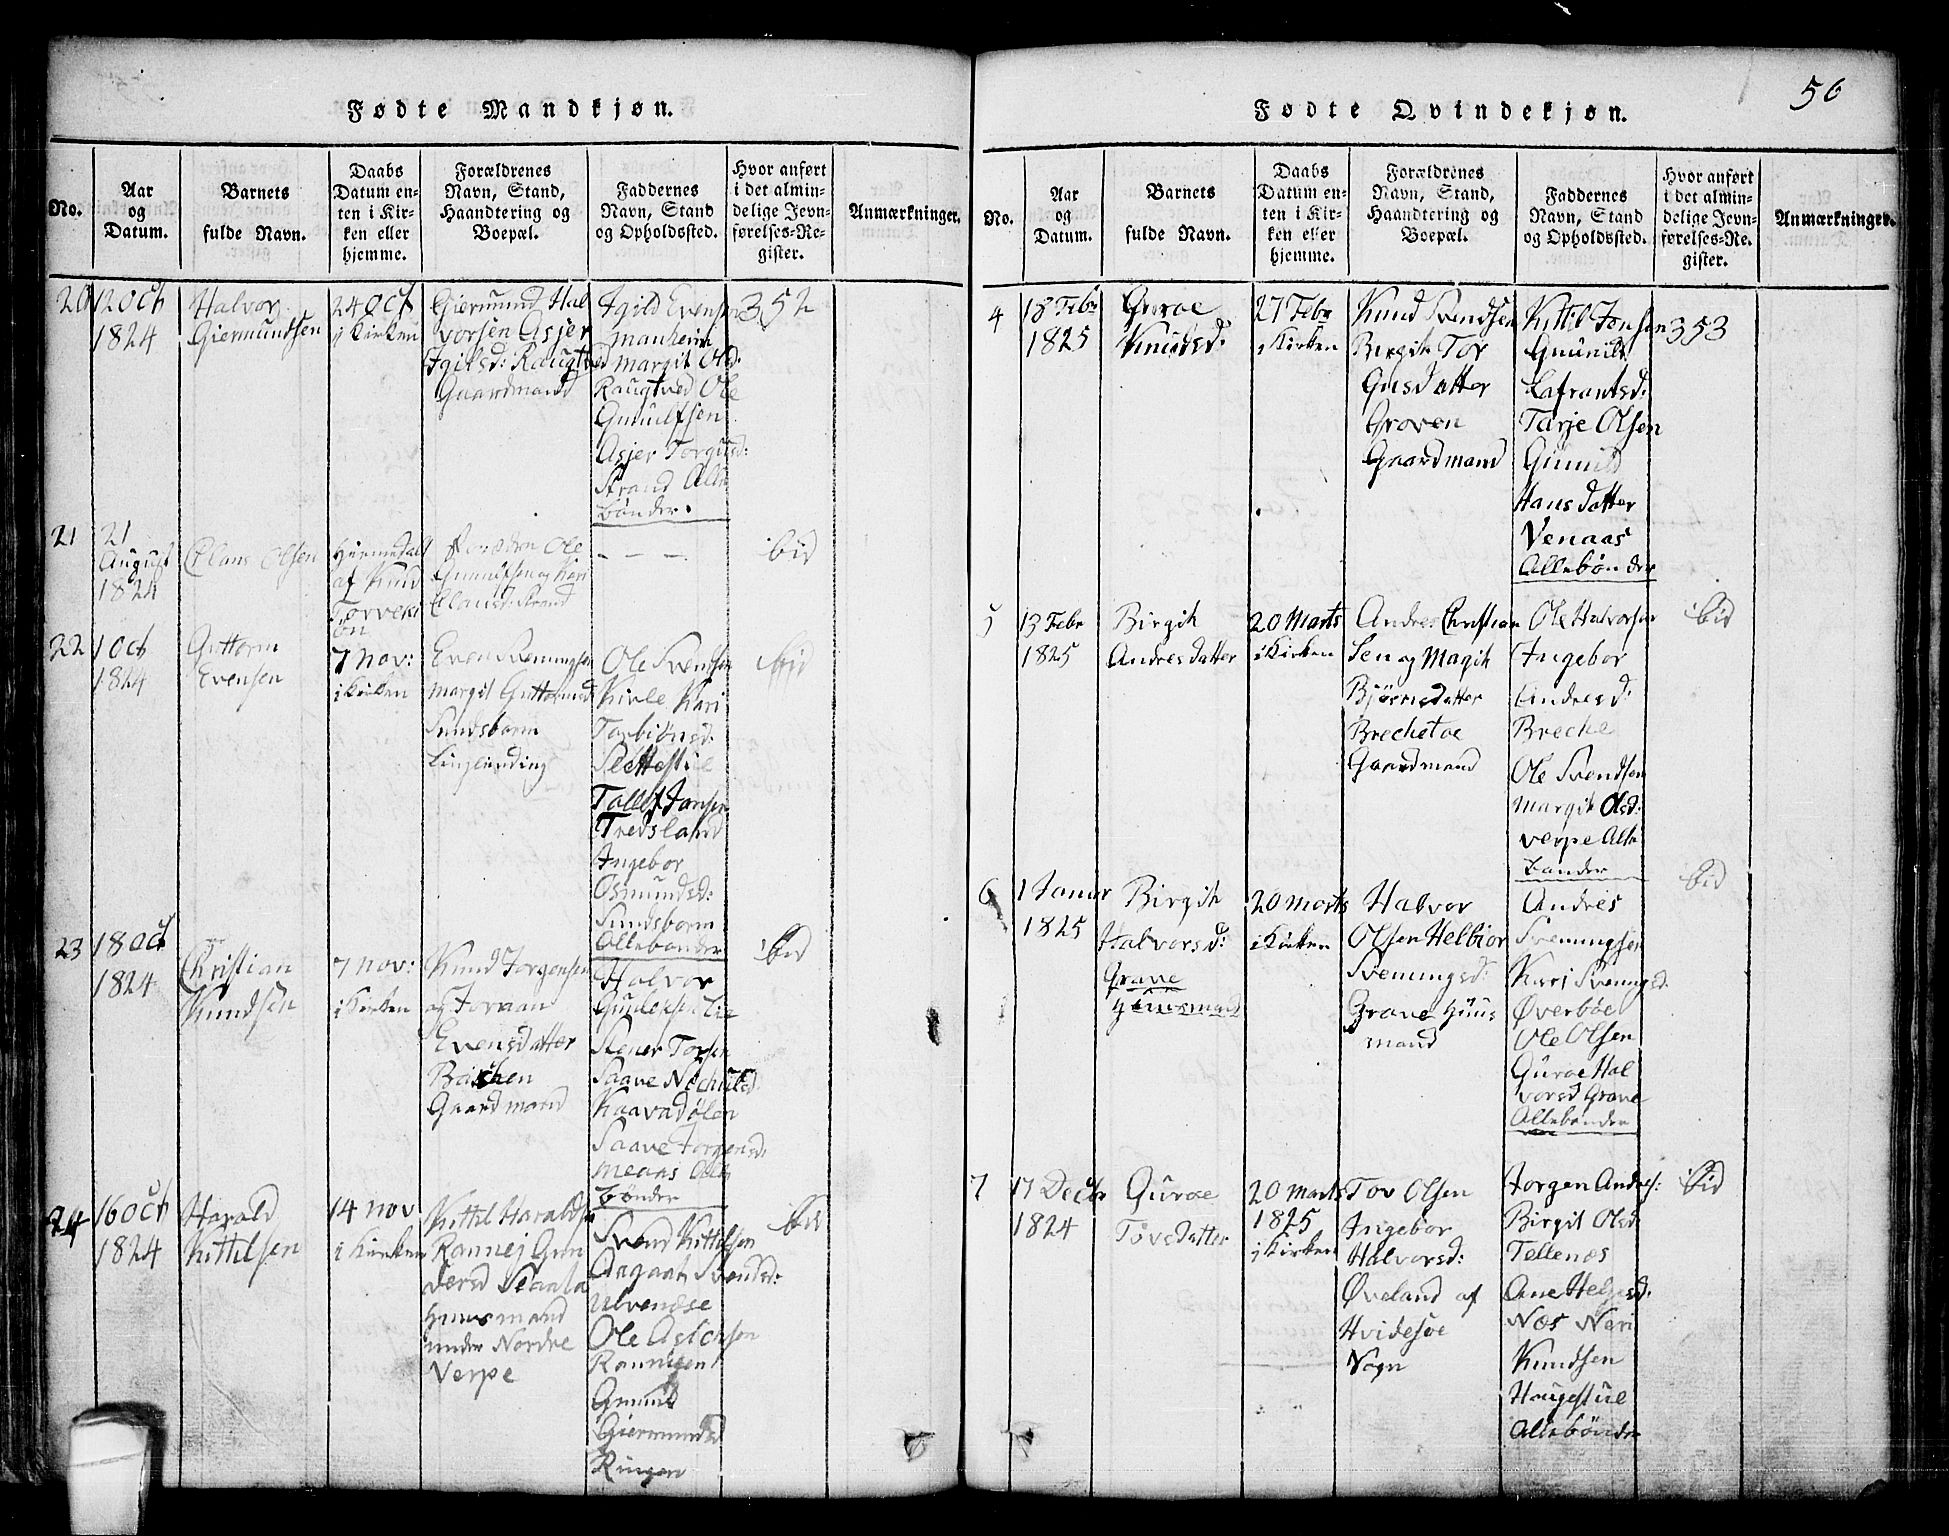 Fødte Mandkjøn.
No.
Aar
og
Datum.
Barnets
fulde Navn.
Daabs
Datum en-
ten i Kir-
ken eller
hjemme.
Forældrenes
Navn, Stand,
Haandtering og
Boepæl.
Faddernes
Navn, Stand
og Opholdssted.
Hvor anført
i det almin-
delige Jevn-
førelses-Re-
gister.
Anmærkninger.
20
12 Octb
1824
Halvor
Giermundsen
24 Oct
i Kirken
Giermund Hal
vorsen Asjer
Igilsd: Raugtved
Gaardmand
Igild Evensen
manheim
Margit Olsd:
Raugtved Ole
Gunulfsen
Asjer Torgusd:
Strand Alle
bønder.
352
21
21
August
1824
Claus Olsen
Hiemmedøbt
af Knud
Ole
Gunulfsen og Kari
Clausd: Strand
- - -
ibid
22
1 Octb
1824
Guttorm
Evensen
7 Nov:
i Kirken
Even Svenungsen
Margit Guttormsd
Sundsbarm
Ole Svendsen
Kivle Kari
Torbiønsd:
Slettestuel
Tallef Jansen
Tredsland
Ingebor
Osmundsd:
Sundsborm
Allebønder
ibid
23
18 Oct
1824
Christian
Knudsen
7 nov:
i Kirken
Knud Jorgensen
og Joraan
Evensdatter
Gaardmand
Halvor
Lie
Stener Torsen
Saave
Kaavadølen
Saave Jorgensd:
Alle
bønder
ibid
24
16 Octb
1824
Harald
Kittilsen
14 nov
i Kirken
Kittil Haralds
Rannej Gun
dersd
Huusmand
under Nordre
Verpe
Svend Kittilsen
Aagaat Svendsd:
Ulvenæse
Ole Aslaksen
Gunild
Giermundsd
Ringen
ibid
56
Fødte Qvindekjøn.
No.
Aar
og
Datum.
Barnets
fulde Navn.
Daabs
Datum en-
ten i Kir-
ken eller
hjemme.
Forældrenes
Navn, Stand,
Haandtering og
Boepæl.
Faddernes
Navn, Stand
og Opholdssted.
Hvor anført
i det almin-
delige Jevn-
førelses-Re-
gister.
Anmærkninger.
4
18 Febr
1825
Guroe
Knudsd:
27 Febr
i Kirken
Knud Svendsen
Birgit Tor
Gusdatter
Groven
Gaardmand
Kittil Jensen
Gunild
Lafrantsd:
Tarje Olsen
Gunild
Hansdatter
Venaas
Allebønder
353
5
13 Febr
1825
Birgit
Andresdatter
20 Marts
i Kirken
Andres Christian
Sen og Magit
Bjørnsdatter
Brechetoe
Gaardmand
Ole Halvorsen
Ingebor
Andresd:
Breche
Ole Svendsen
Margit Olsd:
Verpe Alle
bønder
ibid
6
1 Januar
1825
Birgit
Halvorsd:
Grave
Huusmand
20 Marts
i Kirken
Halvor
Olsen Helbior
Svenungsd:
Grave Huus
mand
Andres
Svenungsen
Kari Svenungsd.
Øverbøe
Ole Olsen
Guroe Hal
vorsd Grave
Allebønder
ibid
7
17 Decbr
1824
Guroe
Tovedatter
20 Marts
1825
i Kirken
Tov Olsen
Ingebor
Halvorsd:
Øveland af
Hvidesøe
Sogn
Jorgen Andres:
Birgit Olsd
Tellenæs
Ane Helgesd:
Næs Neri
Knudsen
Haugestuel
Allebønder
ibid